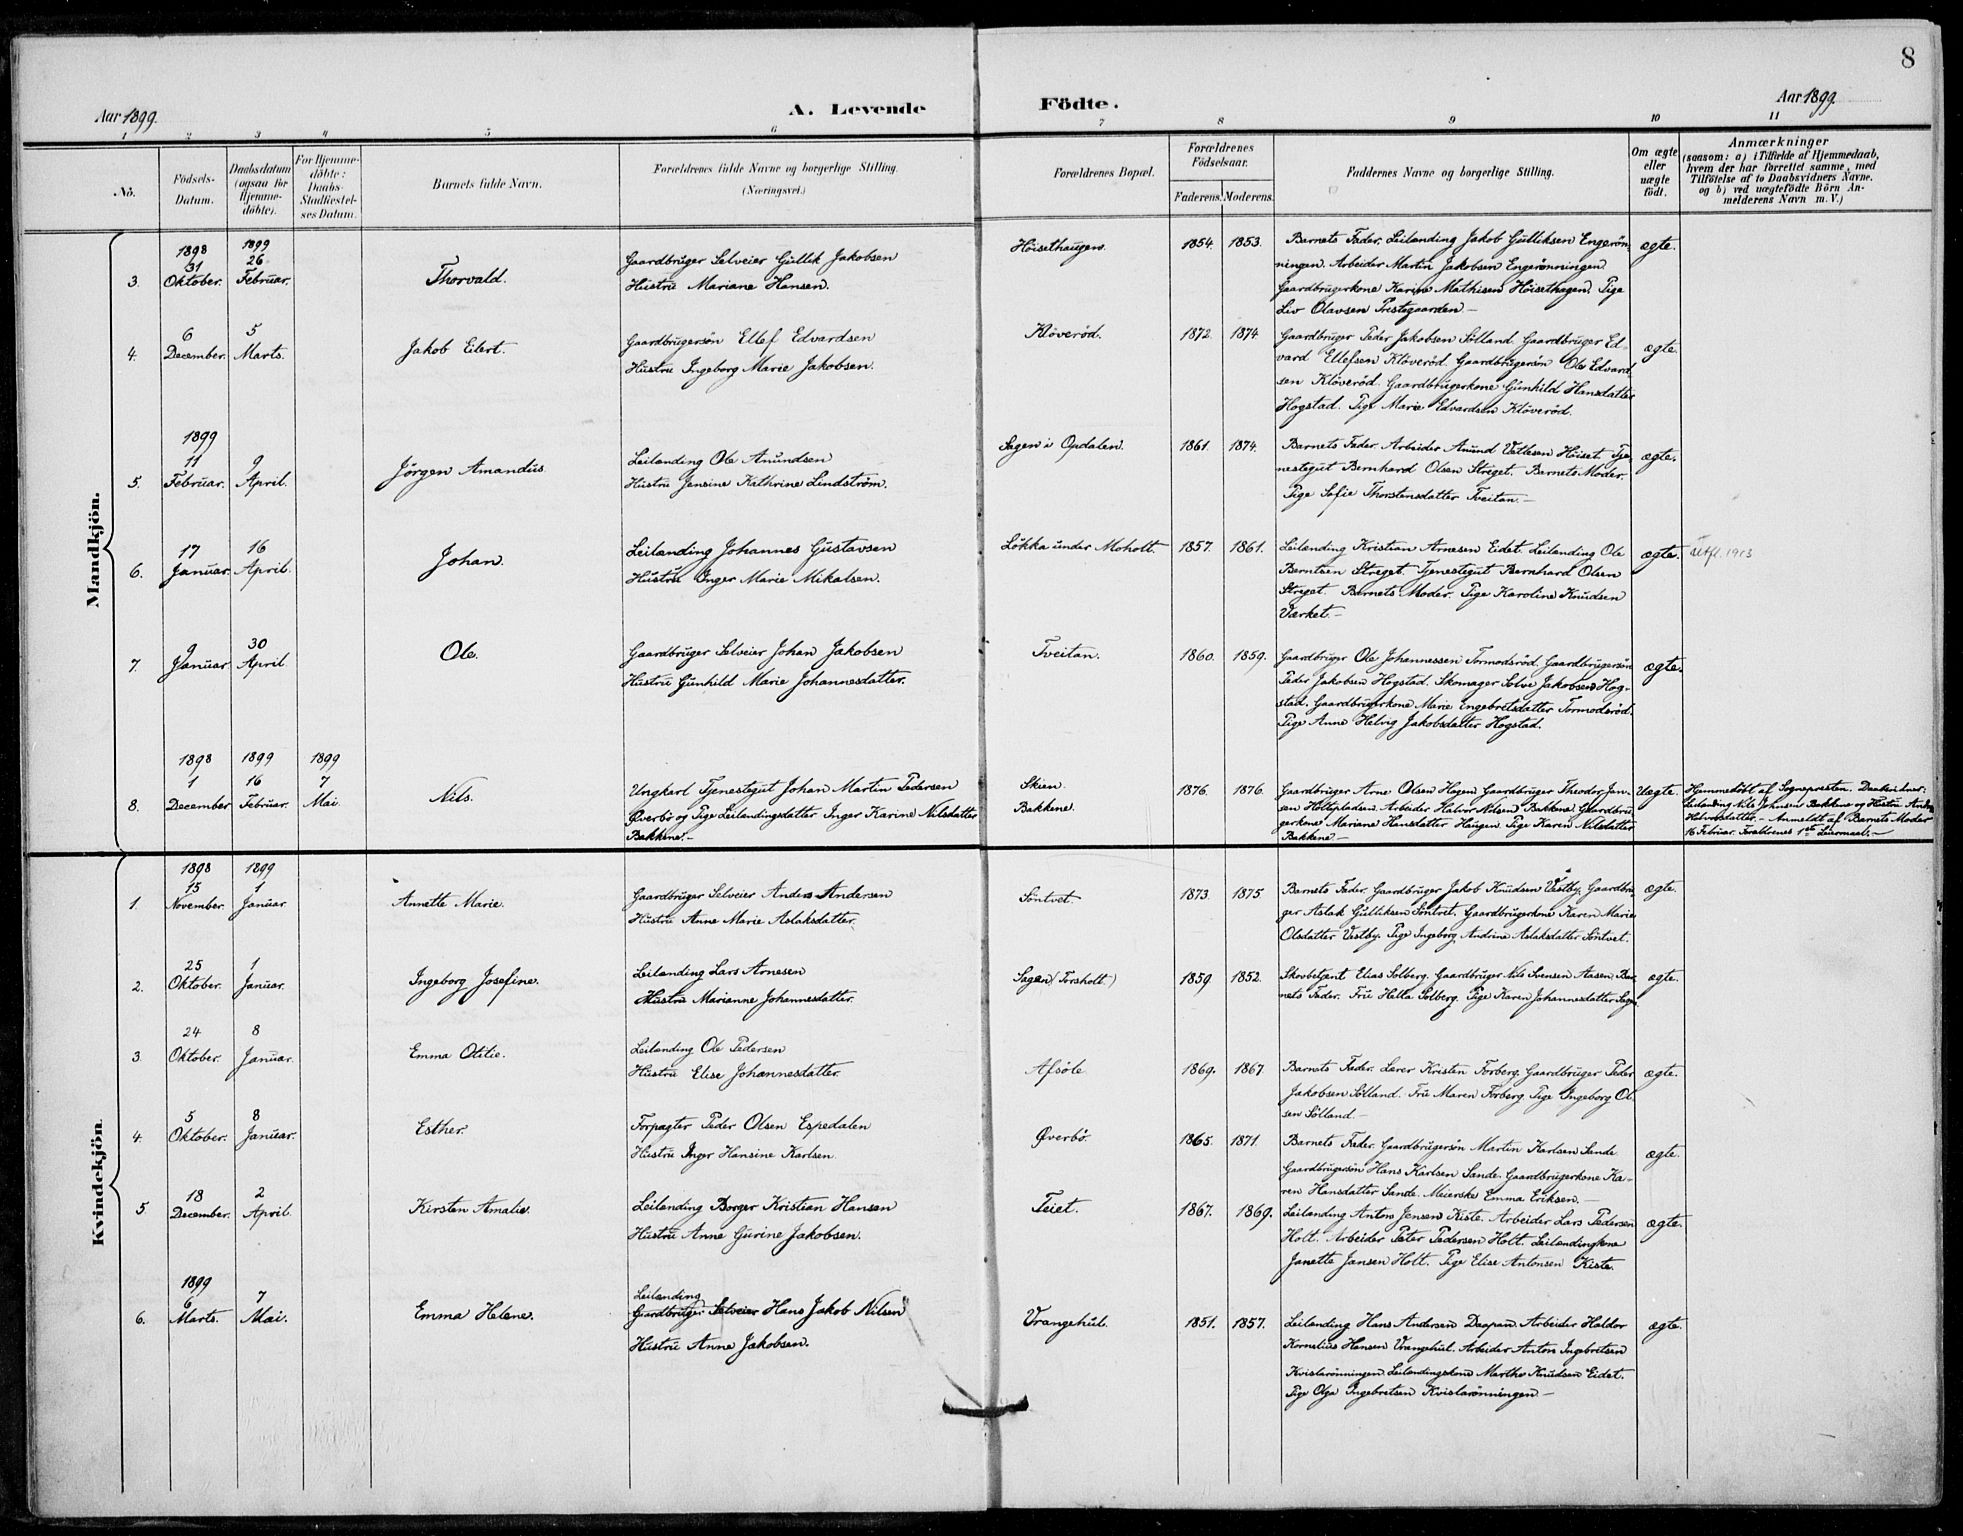 8
Aar 1899.
A. Levende Födte.
Aar 1899
1 2 3 4 5 6 7 8 9 10 11
No.
Födsels-
Datum.
Daabsdatum
(ogsaa for
Hjemme-
döbte).
For Hjemme-
döbte:
Daabs-
Stadfæstel-
ses Datum.
Barnets fulde Navn.
Forældrenes fulde Navne og borgerlige Stilling.
(Næringsvei.)
Forældrenes Bopæl.
Forældrenes
Födselsaar.
Faderens. Moderens.
Faddernes Navne og borgerlige Stilling.
Om ægte
eller
uægte
födt.
Anmærkninger
(saasom: a) i Tilfælde af Hjemmedaab,
hvem der har forrettet samme, med
Tilföielse af to Daabsvidners Navne,
og b) ved uægtefödte Börn An-
melderens Navn m. V.)
Mandkjön.
3.
1898
31
Oktober.
1899
26
Februar.
Thorvald.
Gaardbruger Selveier Gullik Jakobsen
Hustru Mariane Hansen.
Höisethaugen.
1854. 1853.
Barnets Fader. Leilænding Jakob Gulliksen Engerön-
ningen. Arbeider Martin Jakobsen Engerönningen.
Gaardbrugerkone Karine Mathisen Höisethagen. Pige
Liv Olavsen Prestegaarden –
ægte.
4.
6
December.
5
Marts.
Jakob Eilert.
Gaardbrugersön Ellef Edvardsen
Hustru Ingeborg Marie Jakobsen.
Klöveröd.
1872. 1874.
Gaardbruger Peder Jakobsen Sölland. Gaardbruger Ed-
vard Ellefsen Klöveröd. Gaardbrugersön Ole Edvard-
sen Klöveröd. Gaardbrugerkone Gunhild Hansdatter
Hogstad. Pige Marie Edvardsen Klöveröd.
ægte.
5.
1899
11
Februar.
9
April.
Jörgen Amandus.
Leilænding Ole Anundsen
Hustru Jensine Kathrine Lindström.
Sagen i Opdalen.
1861. 1874.
Barnets Fader. Arbeider Anund Vetlesen Höiset. Tje-
nestegut Bernhard Olsen Streget. Barnets Moder.
Pige Sofie Thorstensdatter Tveitan. –
ægte.
6.
17
Januar.
16
April.
Johan.
Leilænding Johannes Gustavsen
Hustru Inger Marie Mikalsen.
Lökka under Moholt.
1857. 1861.
Leilænding Kristian Arnesen Eidet. Leilænding Ole
Berntsen Streget. Tjenestegut Bernhard Olsen
Streget. Barnets Moder. Pige Karoline Knudsen
Værket. –
ægte.
utfl. 1913
7.
9
Januar
30
April
Ole.
Gaardbruger Selveier Johan Jakobsen
Hustru Gunhild Marie Johannesdatter.
Tveitan.
1860. 1859.
Gaardbruger Ole Johannessen Tormodsröd. Gaardbrugersön
Peder Jakobsen Hogstad. Skomager Solve Jakobsen Hog-
stad. Gaardbrugerkone Marie Engebretsdatter Tormodsröd.
Pige Anne Helvig Jakobsdatter Hogstad.
ægte.
8.
1898
1
December
1899
16
Februar.
1899
7
Mai.
Nils.
Ungkarl Tjenestegut Johan Martin Pedersen
Øverbö og Pige Leilændingsdatter Inger Karine Nilsdatter
Bakkene. –
Skien.
Bakkene.
1876. 1876.
Gaardbruger Arne Olsen Hagen. Gaardbruger Theodor Jan-
sen Holtepladsen. Arbeider Halvor Nilsen Bakkene. Gaardbru-
gerkone Mariane Hansdatter Haugen. Pige Karen Nilsdatter
Bakkene. –
Uægte.
Hjemmedöbt af Sognepresten. Daabsvidner:
Leilænding Nils Johnsen Bakkene og Hustru
Halvorsdatter. – Anmeldt af Barnets Moder
16 Februar. Forældrenes 1ste Leiermaal. –
Kvindekjön.
1.
1898
15
November.
1899
1
Januar
Annette Marie.
Gaardbruger Selveier Anders Andersen
Hustru Anne Marie Aslaksdatter.
Söntvet.
1873. 1875.
Barnets Fader. Gaardbruger Jakob Knudsen Vestby. Gaardbru-
ger Aslak Gulliksen Söntvet. Gaardbrugerkone Karen Marie
Olsdatter Vestby. Pige Ingeborg Andrine Aslaksdatter Söntvet.
ægte.
2.
25
Oktober.
1
Januar.
Ingeborg Josefine.
Leilænding Lars Arnesen
Hustru Marianne Johannesdatter.
Sagen (Torsholt)
1859 1852.
Skovbetjent Elias Solberg. Gaardbruger Nils Svensen Aasen. Bar-
nets Fader. Fru Hella Solberg. Pige Karen Johannesdatter Sagen.
ægte.
3.
24
Oktober.
8
Januar.
Emma Otilie.
Leilænding Ole Pedersen
Hustru Elise Johannesdatter.
Afsöte
1869. 1867
Barnets Fader. Lærer Kristen Forberg. Gaardbruger Peder
Jakobsen Sölland. Fru Maren Forberg. Pige Ingeborg Ol-
sen Sölland. –
ægte.
4.
5
Oktober.
8
Januar.
Esther.
Forpagter Peder Olsen Espedalen
Hustru Inger Hansine Karlsen.
Øverbö.
1865. 1871.
Barnets Fader. Gaardbrugersön Martin Karlsen Sande.
Gaardbrugersön Hans Karlsen Sande. Gaardbrugerkone Ka-
ren Hansdatter Sande. Meierske Emma Eriksen. –
ægte.
5
18
December.
2
April.
Kirsten Amalie.
Leilænding Borger Kristian Hansen
Hustru Anne Gurine Jakobsen.
Teiet.
1867. 1869.
Leilænding Anton Jensen Kiste. Arbeider Lars Pedersen
Holt. Arbeider Peter Pedersen Holt. Leilændingkone
Janette Jansen Holt. Pige Elise Antonsen Kiste.
ægte.
6.
1899
6
Marts.
7
Mai.
Emma Helene.
Leilænding
Gaardbruger Selveier Hans Jakob Nilsen
Hustru Anne Jakobsen.
Vrangehul.
1851. 1857.
Leilænding Hans Andersen Daapan. Arbeider Haldor
Kornelius Hansen Vrangehul. Arbeider Anton Ingebritsen
Kvislarönningen. Leilændingskone Marthe Knudsen Eidet.
Pige Olga Ingebretsen Kvislarönningen –
ægte.